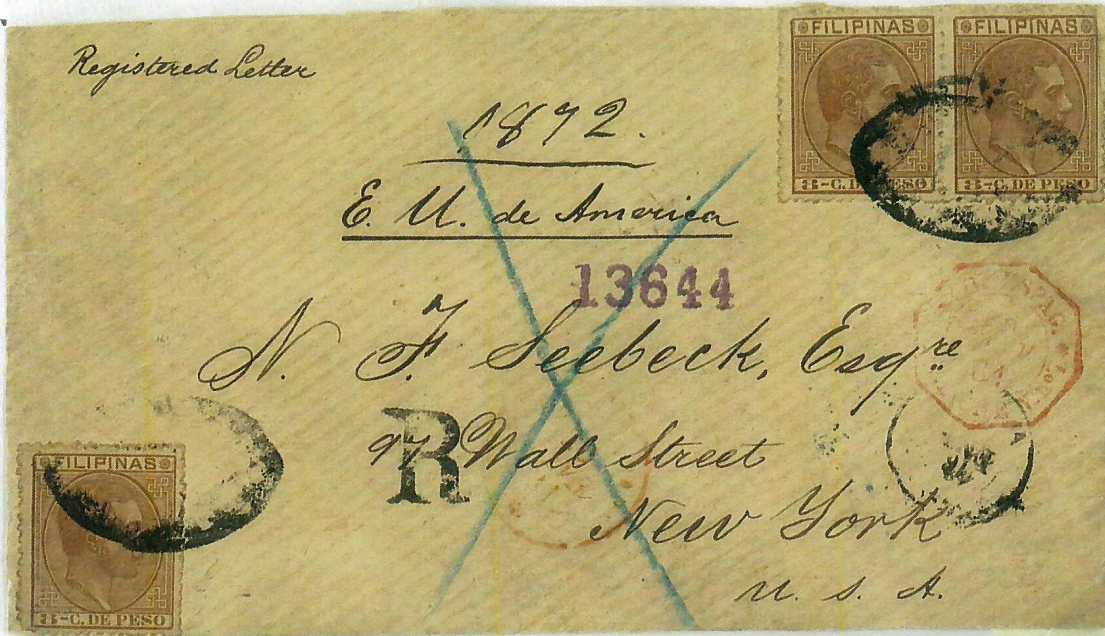 Registered Letter
FILIPINAS FILIPINAS
8-C. DE PESO 8-C. DE PESO
1872.
E. U. de America
13644
N. F. Seebeck, Esqre
R
97 Wall Street
New York
U. S. A.
FILIPINAS
8-C. DE PESO